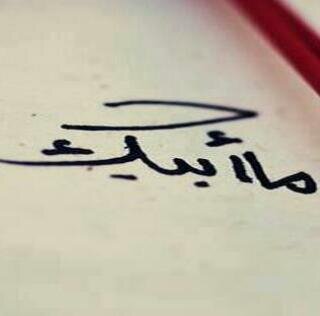 ماأبيك